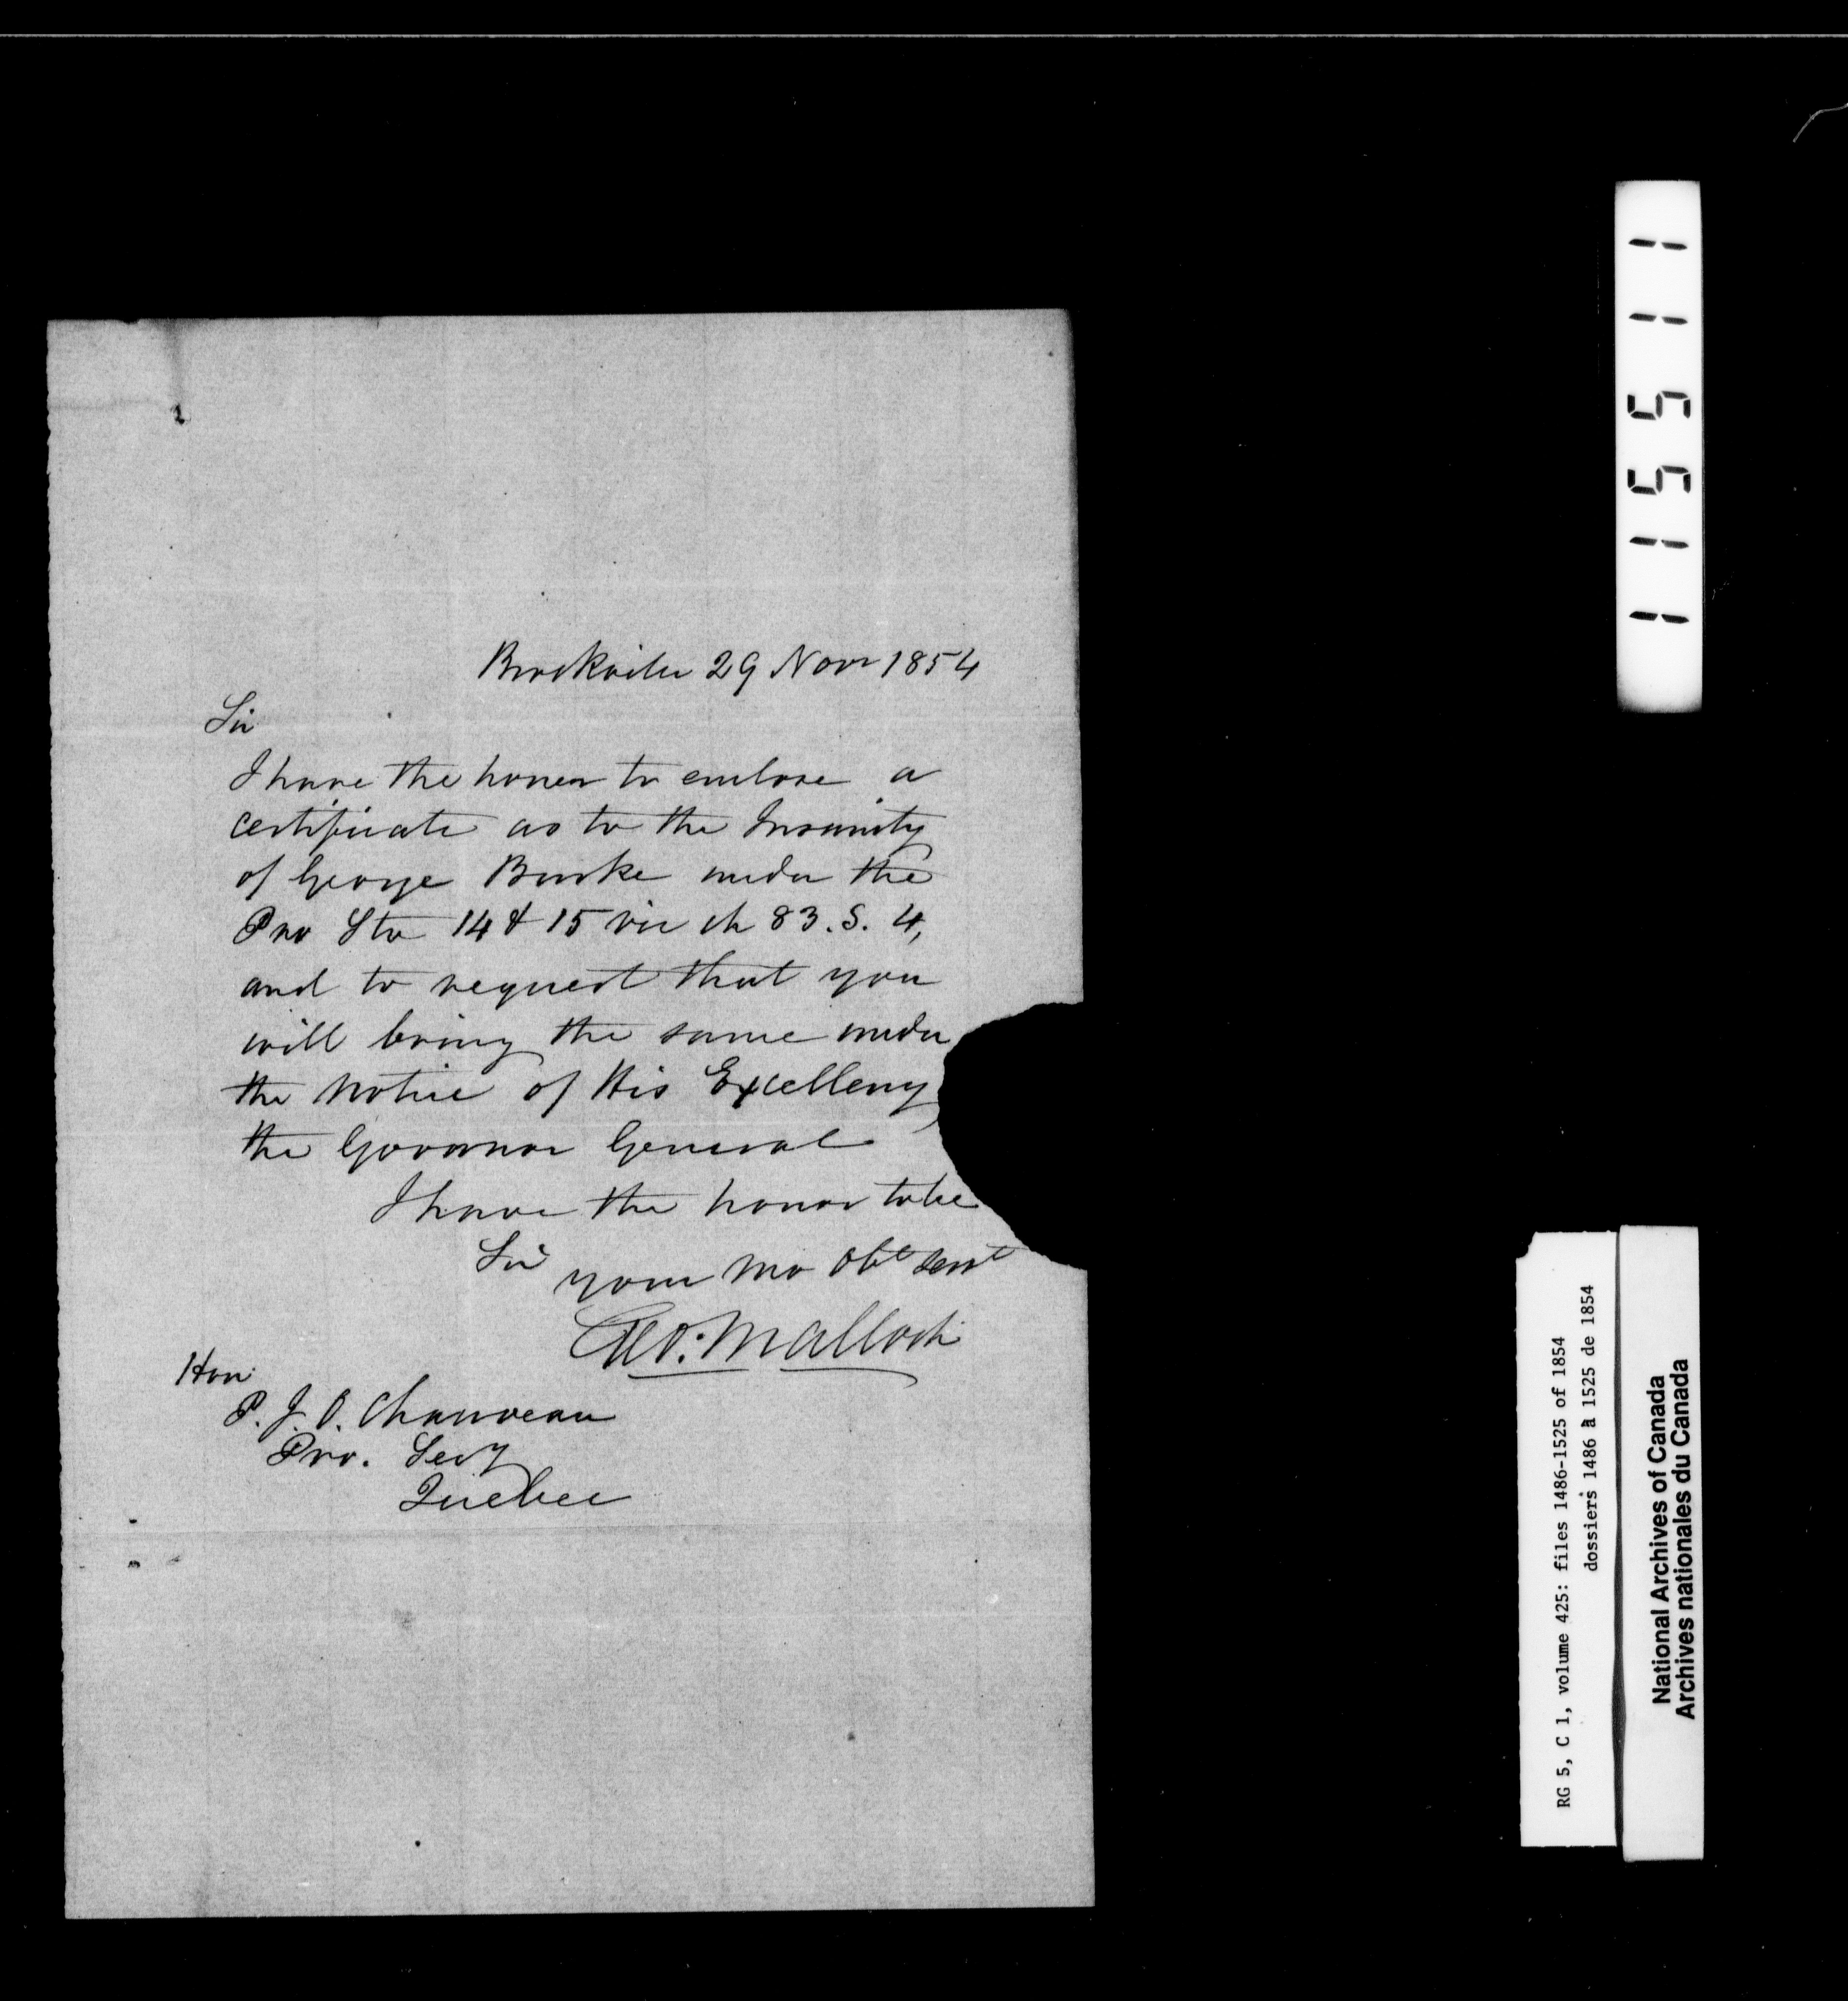 Brockville 29 Novr 1854
Sir
I have the honor to enclose a
certificate as to the Insanity
of George Burke under the
Pro Sta 14 & 15 vic ch 83. S. 4,
and to request that you
will bring the same under
the notice of His Excellency
the Governor General
I have the honor to be
Sir
your mo Obt Servt
Geo. Malloch
Hon
P. J. O. Chauveau
Pro. Secy
Quebec
115511
RG 5, C 1, volume 425: files 1486-1525 of 1854
dossiers 1486 à 1525 de 1854
National Archives of Canada
Archives nationales du Canada